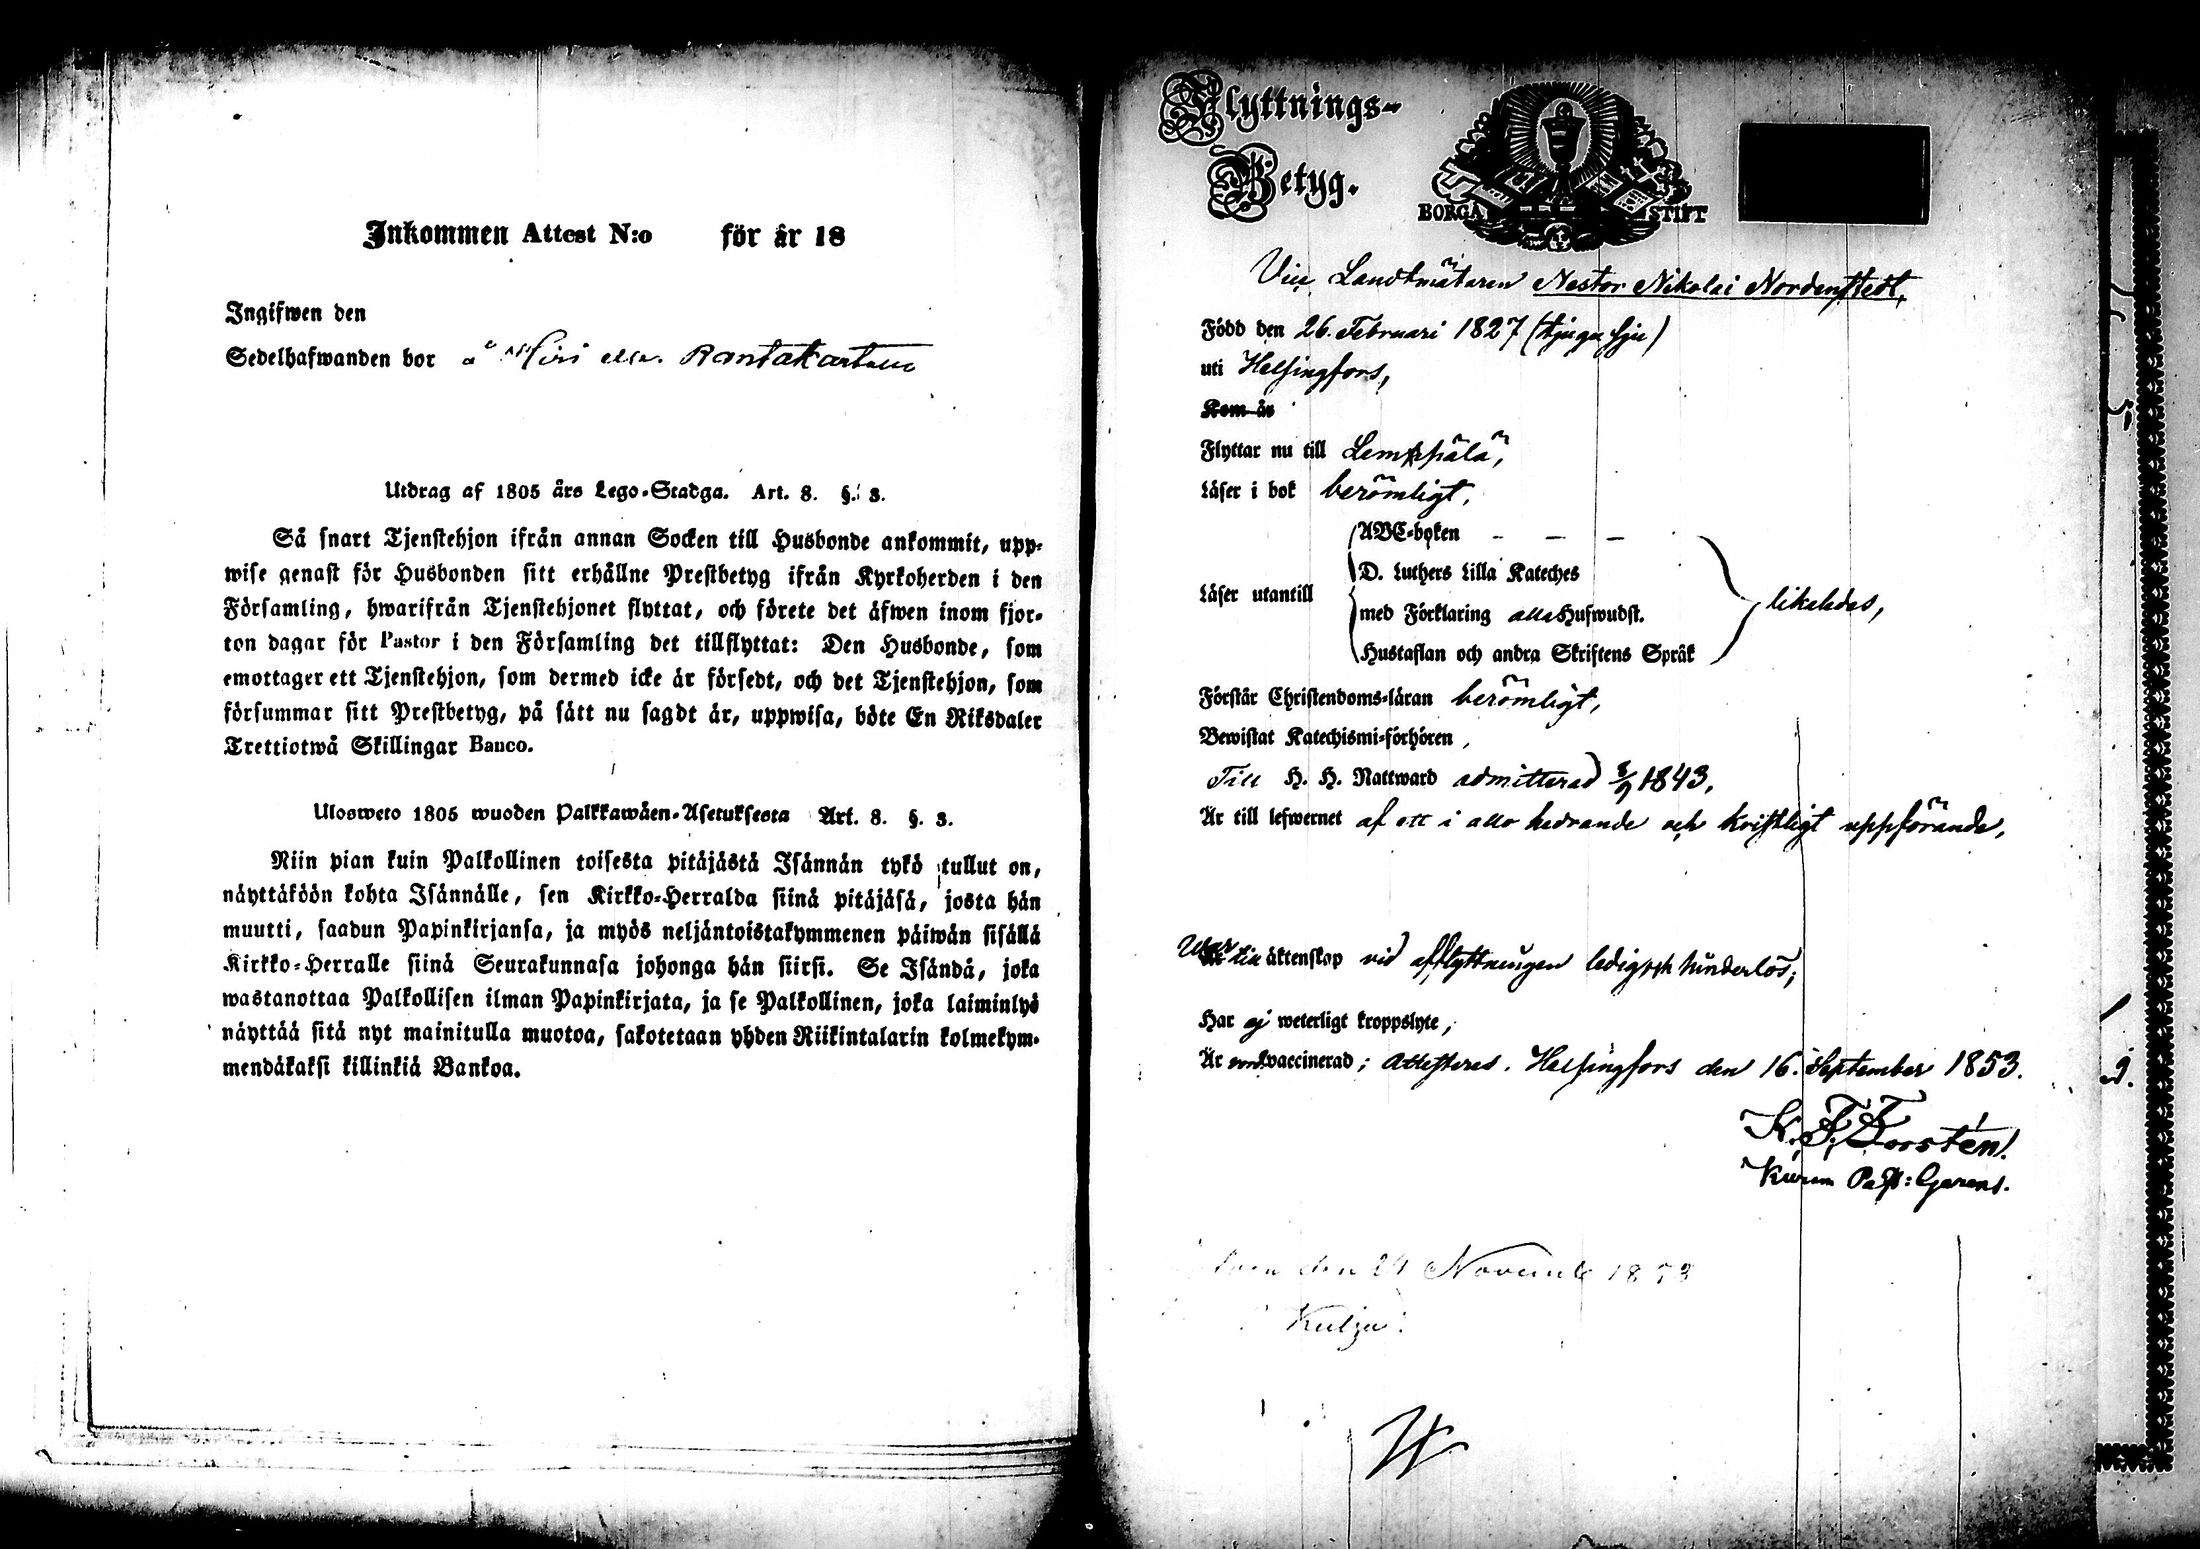 Inkommen Attest N:o för år 18
Ingifwen den
Sedelhafwanden bor å
Utdrag af 1805 års Lego-Stadga. Art. 8. §. 3.
Så snart Tjenstehjon ifrån annan Socken till Husbonde ankommit, upp-
wise genast för Husbonden sitt erhållne Prestbetyg ifrån Kyrkoherden i den
Församling, hwarifrån Tjenstehjonet flyttat, och förete det äfwen inom fjor-
ton dagar för Pastor i den Församling det tillflyttat: Den Husbonde, som
emottager ett Tjenstehjon, som dermed icke är försedt, och det Tjenstehjon, som
försummar sitt Prestbetyg, på sätt nu sagdt är, uppwisa, böte En Riksdaler
Trettiotwå Skillingar Banco.
Ulosweto 1805 wuoden Palkkawäen-Asetuksesta Art. 8. §. 3.
Niin pian kuin Palkollinen toisesta pitäjästä Isännän tykö tullut on,
näyttäköön kohta Isännälle, sen Kirkko-Herralda siinä pitäjäsä, josta hän
muutti, saadun Papinkirjansa, ja myös neljäntoistakymmenen päiwän sisällä
Kirkko-Herralle siinä Seurakunnasa johonga hän siirsi. Se Isändä, joka
wastanottaa Palkollisen ilman Papinkirjata, ja se Palkollinen, joka laiminlyö
näyttää sitä nyt mainitulla muotoa, sakotetaan yhden Riikintalarin kolmekym-
mendäkaksi killinkiä Bankoa.
Flyttnings-
Betyg.
BORGÅ STIFT
Vice Landtmätaren Nestor Nikolai Nordenstedt,
Född den 26. Februari 1827 (tjugu sju)
uti Helsingfors,
Kom år
Flyttar nu till Lempälä,
Läser i bok berömligt,
Läser utantill
ABC-boken - - -
D. Luthers Lilla Kateches
med Förklaring alla Hufwudst.
Hustaflan och andra Skriftens Språk
likaledes,
Förstår Christendoms-läran berömligt,
Bewistat Katechismi-förhören,
Till H. H. Nattward admitterad 1843,
Är till lefwernet af ett i allo hedrande och kristligt uppförande,
War till äktenskap vid afflyttningen ledig och hinderlös;
Har ej weterligt kroppslyte,
Är vaccinerad; Attesteras. Helsingfors den 16. September 1853.
K. F. Forstén.
Kyrim Past: Gerens.
den 24 Novemb 1853
Kulju